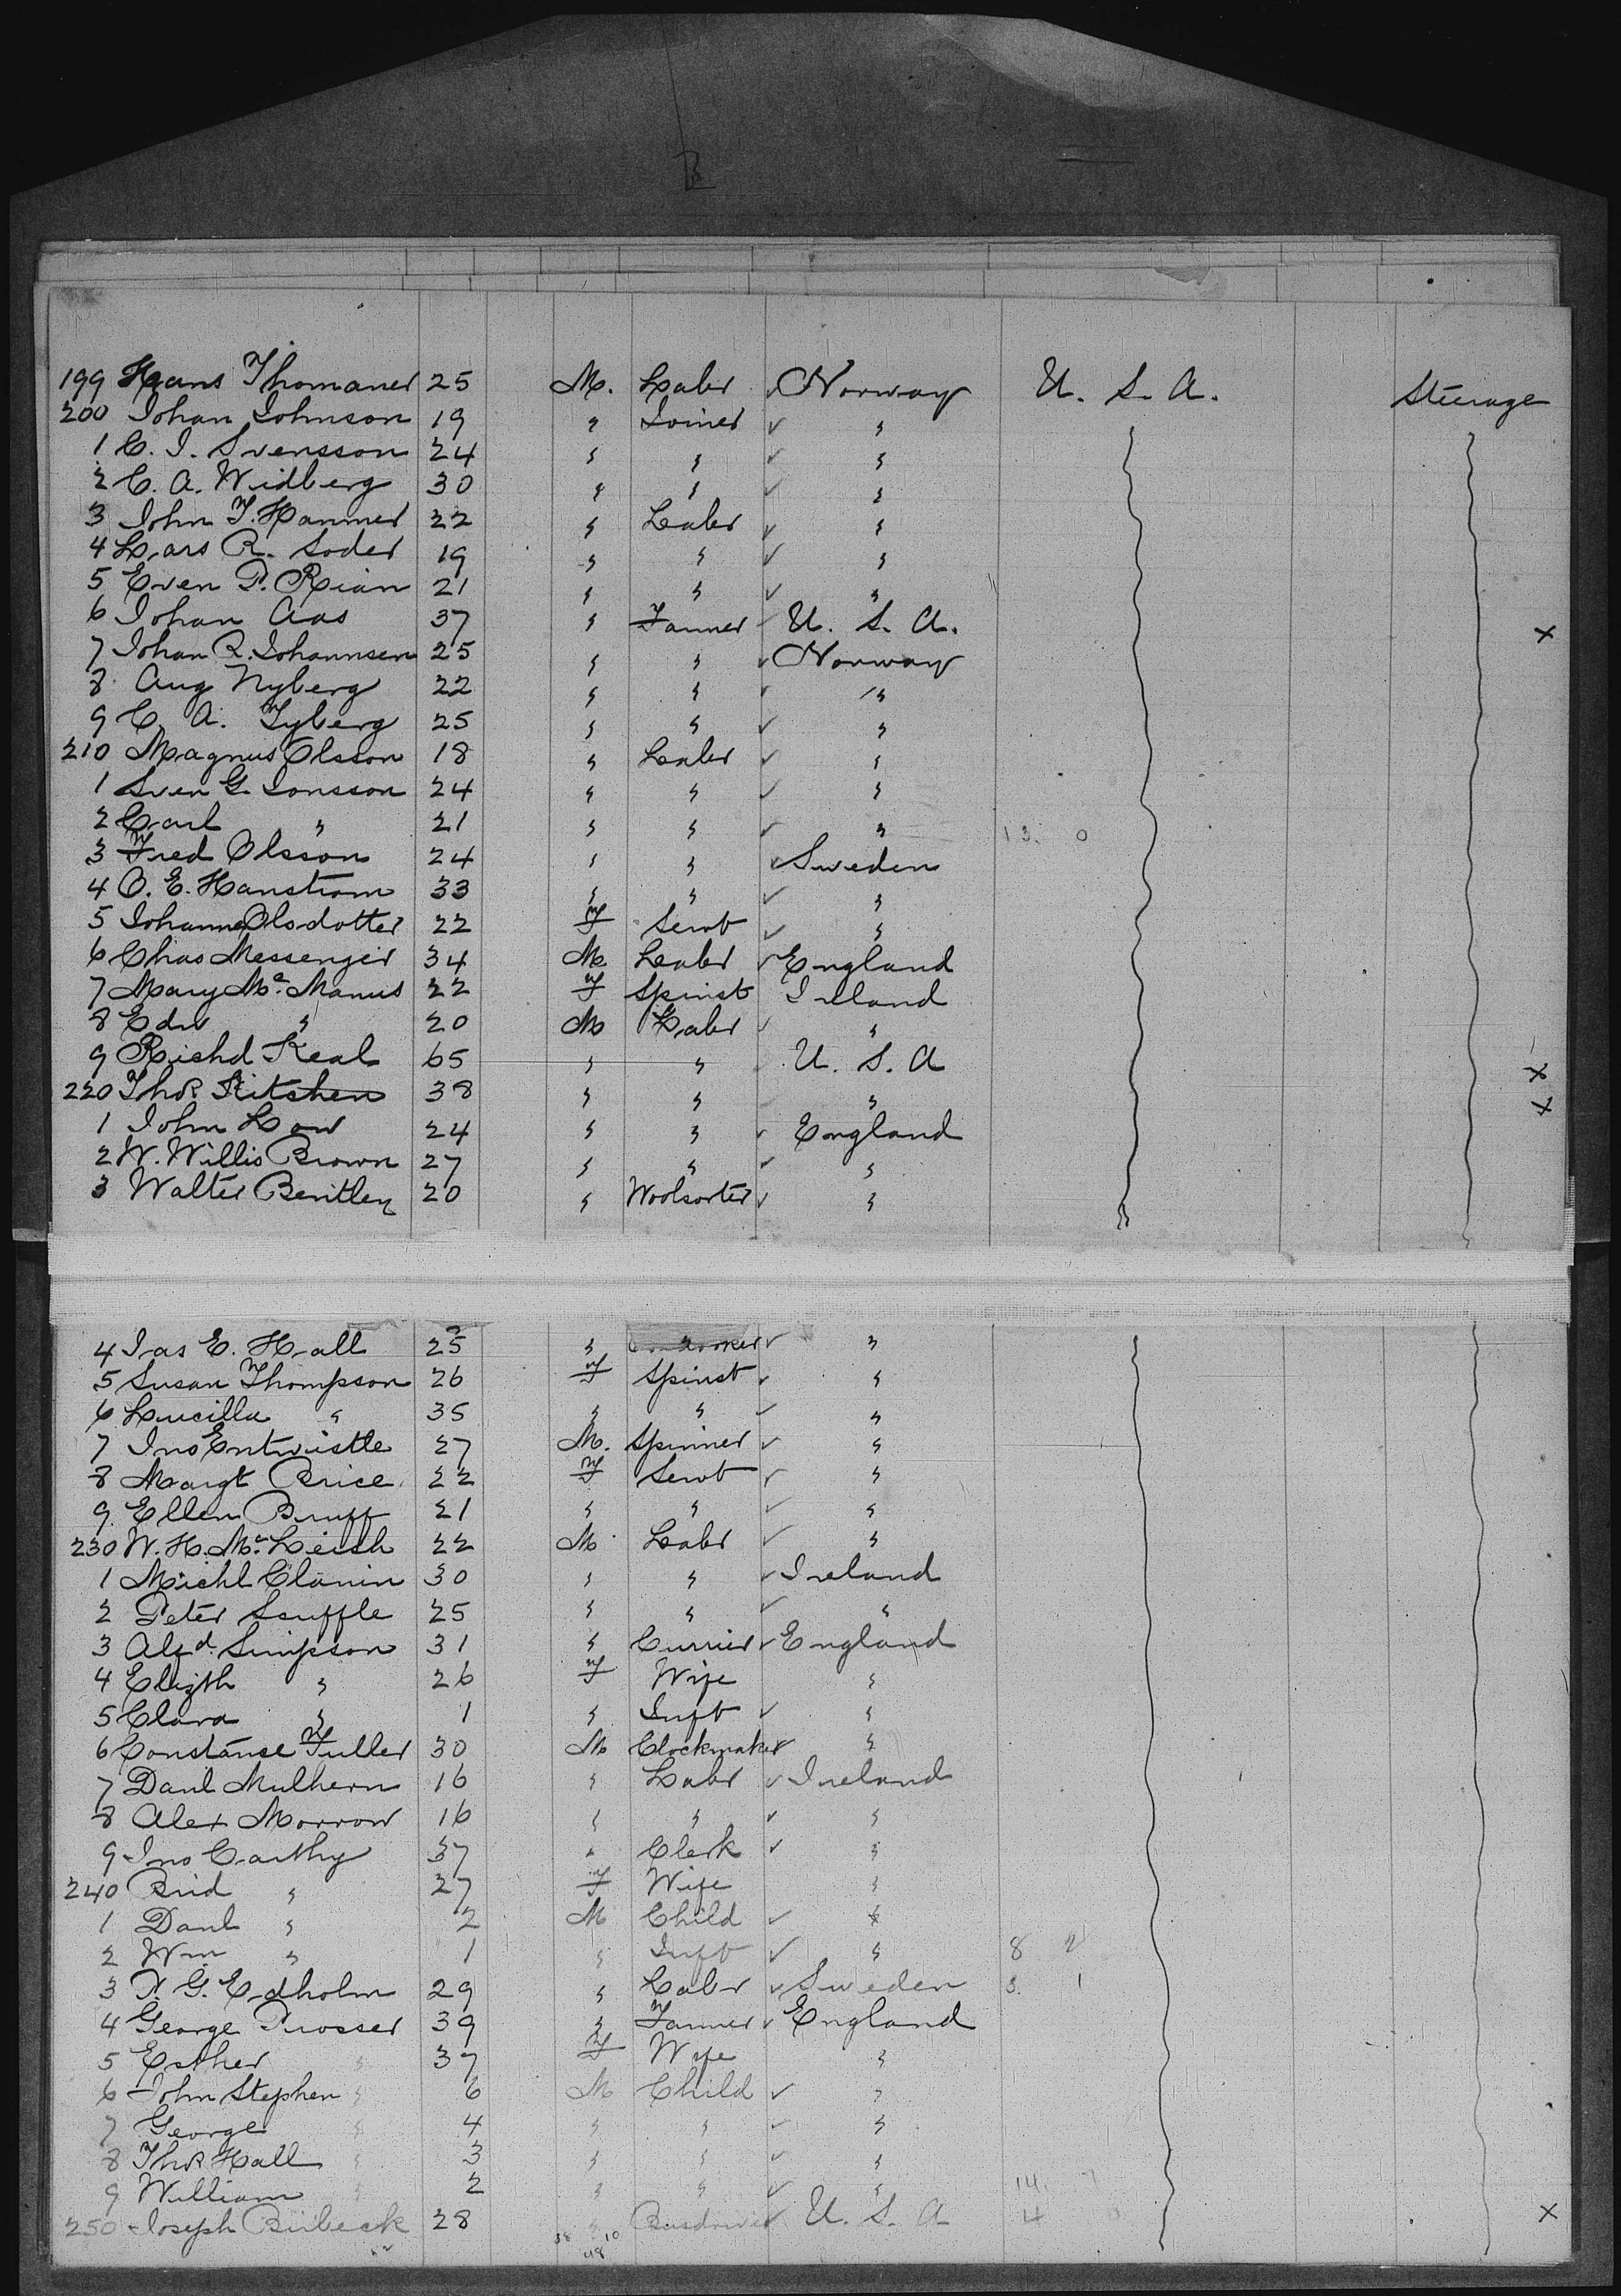 199 Hans Thomaner 25 M. Labr ✓ Norway U. S. A. Steerage
200 Johan Johnson 19 " Joiner ✓ "
1 C. J. Svensson 24 " " ✓ "
2 C. A. Widberg 30 " " ✓ "
3 John T. Hanmer 22 " Labr ✓ "
4 Lars R. Soder 19 " " ✓ "
5 Even P. Rian 21 " " ✓ "
6 Johan Aas 37 " Farmer ✓ U. S. A. x
7 Johan R. Johannsen 25 " " ✓ Norway
8 Aug Nyberg 22 " " ✓ "
9 C. A. Tyberg 25 " " ✓ "
210 Magnus Olsson 18 " Labr ✓ "
1 Sven G. Jonsson 24 " " ✓ "
2 Carl " 21 " " ✓ " 13. 0
3 Fred Olsson 24 " " ✓ Sweden
4 O. E. Hanstrom 33 " " ✓ "
5 Johanna Olsdotter 22 F Servt ✓ "
6 Chas Messenger 34 M. Labr ✓ England
7 Mary Mc. Manus 22 F Spinst Ireland
8 Edw " 20 M Labr ✓ "
9 Richd Keal 65 " " U. S. A x
220 Thos Kitshen 38 " " " x
1 John Low 24 " " ✓ England
2 W. Willis Brown 27 " " ✓ "
3 Walter Bentley 20 " Woolsorter ✓ "
4 Jas E. Hall 25 " ✓ "
5 Susan Thompson 26 F Spinst ✓ "
6 Lucilla " 35 " " ✓ "
7 Jno Entwistle 27 M. Spinner ✓ "
8 Margt Brice 22 F Servt ✓ "
9 Ellen Bruff 21 " " ✓ "
230 W. H. Mc. Leish 22 M Labr ✓ "
1 Michl Clanin 30 " " ✓ Ireland
2 Peter Scuffle 25 " " ✓ "
3 Alfd. Simpson 31 " Currier ✓ England
4 Elizth " 26 F Wife "
5 Clara " 1 " Inft ✓ "
6 Constance Fuller 30 M Clockmaker ✓ "
7 Danl Mulhern 16 " Labr ✓ Ireland
8 Alex Morrow 16 " " ✓ "
9 Jno Carthy 37 " Clerk ✓ "
240 Brid " 27 F Wife "
1 Danl " 2 M Child ✓ "
2 Wm " 1 " Inft ✓ " 8 2
3 N. G. Edholm 29 " Labr ✓ Sweden 3. 1
4 George Prosser 39 " Farmer ✓ England
5 Esther " 37 F Wife "
6 John Stephen " 6 M Child ✓ "
7 George " 4 " " ✓ "
8 Thos Hall " 3 " " ✓ "
9 William " 2 " " ✓ " 14. 7
250 Joseph Birbeck 28 " ✓ U. S. A 4 x
38 10
48